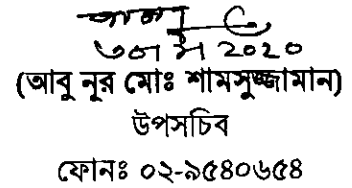 2020
(আবু নূর মোঃ শামসুজ্জামান)
উপসচিব
ফোনঃ ০২-৯৫৪০৬৫৪